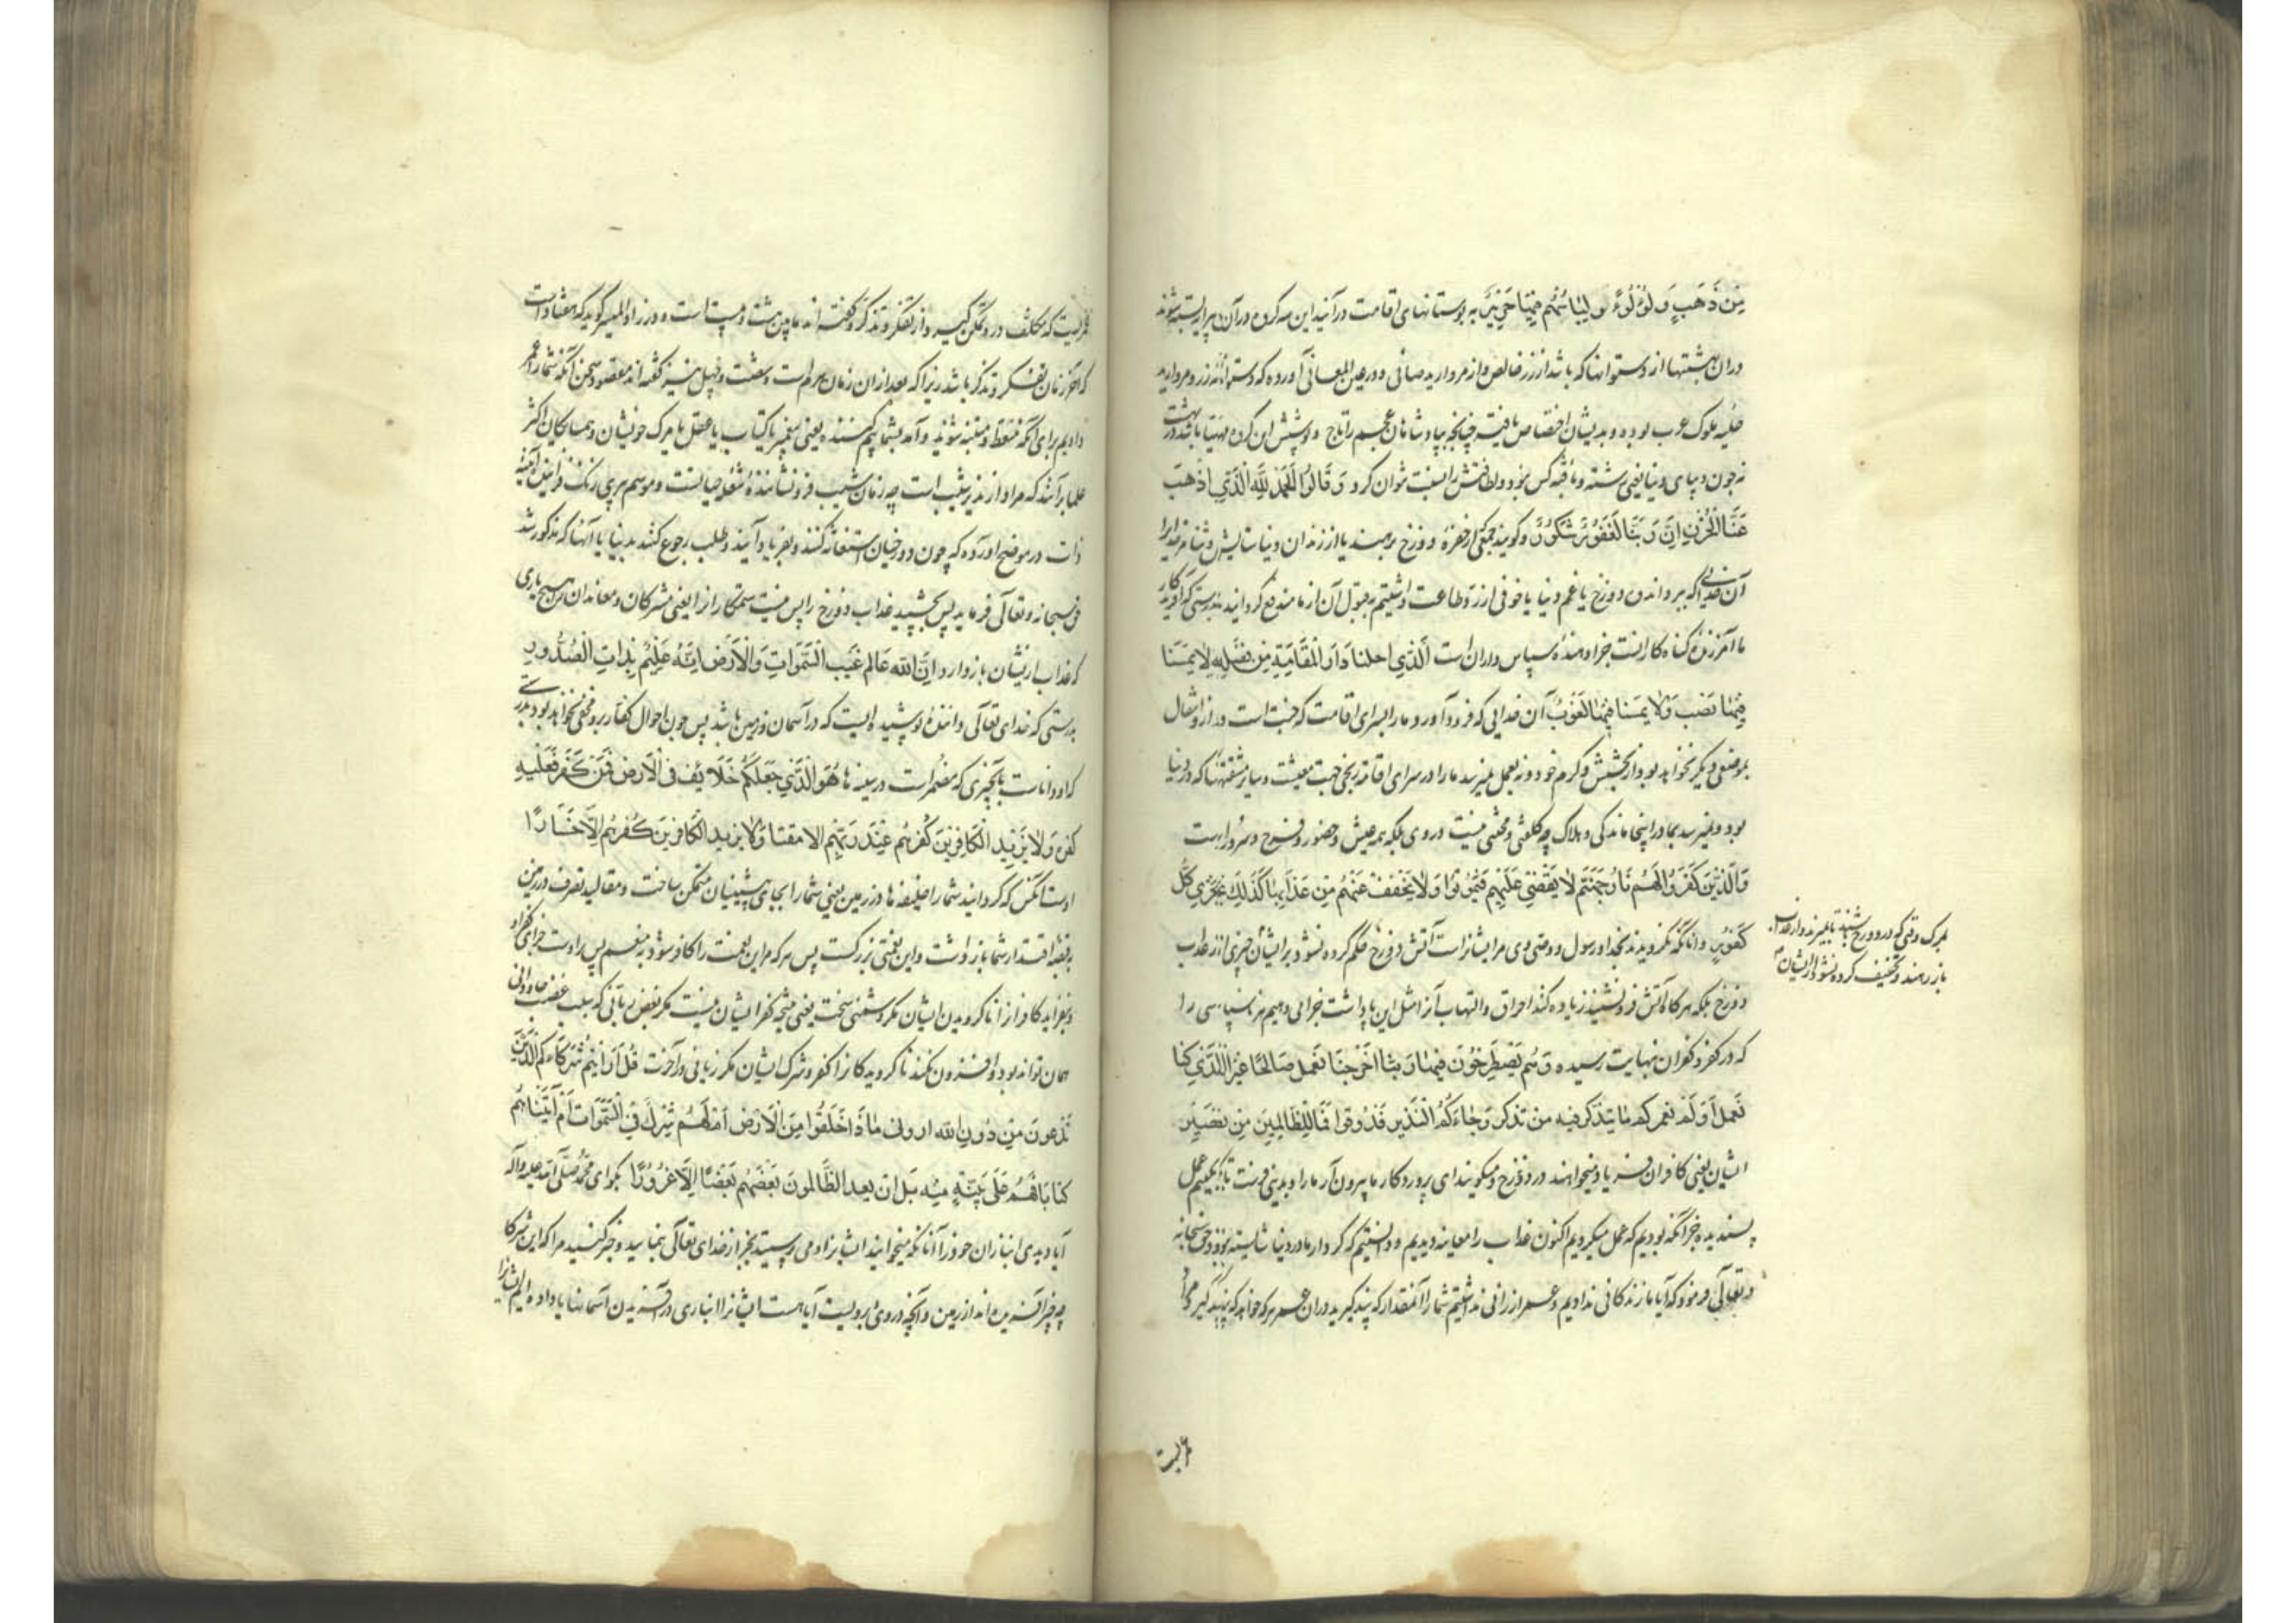 مِن ذَهَبٍ وَلُؤْلُؤً وَلِبَاسُهُم فِيهَا حَرِيرٌ به بوستانهای اقامت درآیند این سه گروه در آن پیرایه بسته شوند
دران بهشتها از دستوانها که باشد از زر خالص و از مروارید صافی و در عین المعانی آورده که دستوانه زر و مروارید
حلیه ملوک عرب بوده و بدیشان اختصاص یافته چنانچه بپادشاهان عجم را تاج و پوشش این گروه مهیا باشد در بهشت
نه چون دیبای دنیا یعنی رشته و بافته کس نبود و لطافتش را نسبت نتوان کرد وَقَالُوا الْحَمْدُ لِلَّهِ الَّذِي أَذْهَبَ
عَنَّا الْحَزَنَ إِنَّ رَبَّنَا لَغَفُورٌ شَكُورٌ و گویند چون از حفره دوزخ برهند یا از زندان دنیا ستایش و ثنا مر خدایرا
آن خدایی که ببرد اندوه دوزخ یا غم دنیا یا خوفی از رد طاعت داشتیم بقبول آن از ما مندفع گردانید بدرستی که آفریدگار
ما آمرزنده گناه کارانست جزا دهنده سپاس داران است الَّذِي أحلنا دَارَ الْمُقَامَةِ مِن فَضْلِهِ لَا يَمَسُّنَا
فِيهَا نَصَب وَلَا يَمَسُّنَا فِيهَا لُغُوبٌ آن خدایی که فرود آورد ما را بسرای اقامت که جنت است و در او انتقال
بموضعی دیگر نخواهد بود از بخشش و کرم خود و نه بعمل نمیرسد ما را در سرای اقامة رنجی جهت معیشت و سایر مشقتها که در دنیا
بود و نمیرسد بما در اینجا ماندگی و هلاک چه کلفتی و محنتی نیست در وی بلکه همه عیش و حضور و فرح و سرور است
وَالَّذِينَ كَفَرُوا لَهُمْ نَارُ جَهَنَّمَ لَا يُقْضَى عَلَيْهِمْ فَيَمُوتُوا وَلَا يُخَفَّفُ عَنْهُم مِن عَذَابِهَا كَذَلِكَ نَجْزِي كُلَّ
كَفُورٍ و آنانکه نگرویدند بخدا و رسول و وصی وی مر ایشانراست آتش دوزخ حکم کرده نشود بر ایشان چیزی از عذاب
بمرگ وقتی که در دوزخ باشند تا بمیرند و از عذاب
باز رهند و تخفیف کرده نشود از ایشان
دوزخ بلکه هرگاه آتش فرونشیند زیاده کند احراق و التهاب آنرا مثل این پاداشت جزا می دهیم هر ناسپاسی را
که در کفر و کفران بنهایت رسیده وَهُم يَصْطَرِخُونَ فِيهَا رَبَّنَا أَخْرِجْنَا نَعْمَل صَالِحًا غَيْرَ الَّذِي كُنَّا
نَعْمَلُ أَوَلَمْ نعمركم مَا يَتَذَكَّرُ فِيهِ مَنْ تَذَكَّرَ وَجَاءَكُمُ النَّذِير فَذُوقُوا فَمَا لِلظَّالِمِينَ مِنْ نَصِيرٍ
ایشان یعنی کافران فریاد میخواهند در دوزخ و میگویند ای پروردگار ما بیرون آر ما را و بدنیا فرست تا بکنیم عمل
پسندیده جز آنکه بودیم که عمل میکردیم اکنون عذاب را معاینه دیدیم و دانستیم که کردار ما در دنیا شایسته نبود حق سبحانه
و تعالی فرمود که آیا ما زندگانی ندادیم و عمر ارزانی نداشتیم شما را آنمقدار که پند گیرید دران عمر هر که خواهد که پند گیرد
عمریست که مکلف در و ممکن گیرد و از تفکر و تذکر و گفته اند ما بین هشت و بیست است و در زاد المسیر گوید که هفتاد است
که آخر زمان تفکر و تذکر باشد زیرا که بعد ازان زمان هرم است و شصت و چهل نیز گفته اند مقصود سخن آنکه شما را عمر
دادیم برای آنکه متعظ و متنبه شوید و آمد بشما بیم کننده یعنی پیغمبر یا کتاب یا عقل یا مرگ خویشان و همسایگان اکثر
علما برآنند که مراد از نذیر شیب است چه زمان شیب فرونشاننده شعله حیاتست و موسم پیری رنگ آئینه
ذات در موضح آورده که چون دوزخیان استغاثه کنند و بفریاد آیند و طلب رجوع کنند بدنیا با آنها که مذکور شد
حق سبحانه و تعالی فرماید پس بچشید عذاب دوزخ را پس نیست ستمکارانرا یعنی مشرکان و معاندان را هیچ یاری
که عذاب ازیشان باز دارد إِنَّ اللَّهَ عَالِم غَيْب السَّمَوَاتِ وَالْأَرْضِ إِنَّهُ عَلِيمٌ بِذَاتِ الصُّدُورِ
بدرستی که خدای تعالی داننده پوشیدهایست که در آسمان و زمین باشد پس چون احوال کفار برو مخفی نخواهد بود بدرستی
که او داناست بآنچیزی که مضمر است در سینه ها هُوَ الَّذِي جَعَلَكُمْ خَلَائِفَ فِي الْأَرْضِ فَمَنْ كَفَرَ فَعَلَيْهِ
كُفْرُهُ وَلَا يَزِيدُ الْكَافِرِينَ كُفْرُهُمْ عِنْدَ رَبِّهِمْ إلا مقتا وَلَا يَزِيدُ الْكَافِرِينَ كُفْرُهُمْ إِلَّا خَسَارًا
اوست آنکس که گردانید شما را خلیفه ها در زمین یعنی شما را بجای پیشینیان متمکن ساخت و مقالید تصرف در زمین
بقبضه اقتدار شما باز داشت و این نعمتی بزرگست پس هر که مر این نعمت را کافر شود به منعم پس بر اوست جزای کفر او
و نیفزاید کافرانرا ناگرویدن ایشان مگر دشمنی سخت یعنی نتیجه کفر ایشان نیست مگر بغض ربانی که سبب غضب جاودانی
همان تواند بود و افزون نکند ناگرویدگانرا کفر و شرک ایشان مگر زیانی در آخرت قُلْ أَرَأَيْتُمْ شُرَكَاءَكُمُ الَّذِينَ
تَدْعُونَ مِنْ دُونِ اللَّهِ أروني مَاذَا خَلَقُوا مِنَ الْأَرْضِ أَمْ لَهُمْ شِرْكٌ فِي السَّمَوَاتِ أَمْ آتَيْنَاهُمْ
كِتَابًا فَهُمْ عَلَى بَيِّنَةٍ مِنْهُ بَلْ إِن يعد الظَّالِمُونَ بَعْضُهُمْ بَعْضًا إِلَّا غُرُورًا بگو ای محمد صلی الله علیه وآله
آیا دیدی انبازان خود را آنانکه میخوانید ایشانرا و می پرستید بجز از خدای تعالی بنمایید و خبر کنید مرا که این شرکا
چه چیز آفریده اند از زمین و آنچه در وی و برویست آیا هست ایشانرا انبازی در آفریدن آسمانها یا داده ایم ایشانرا